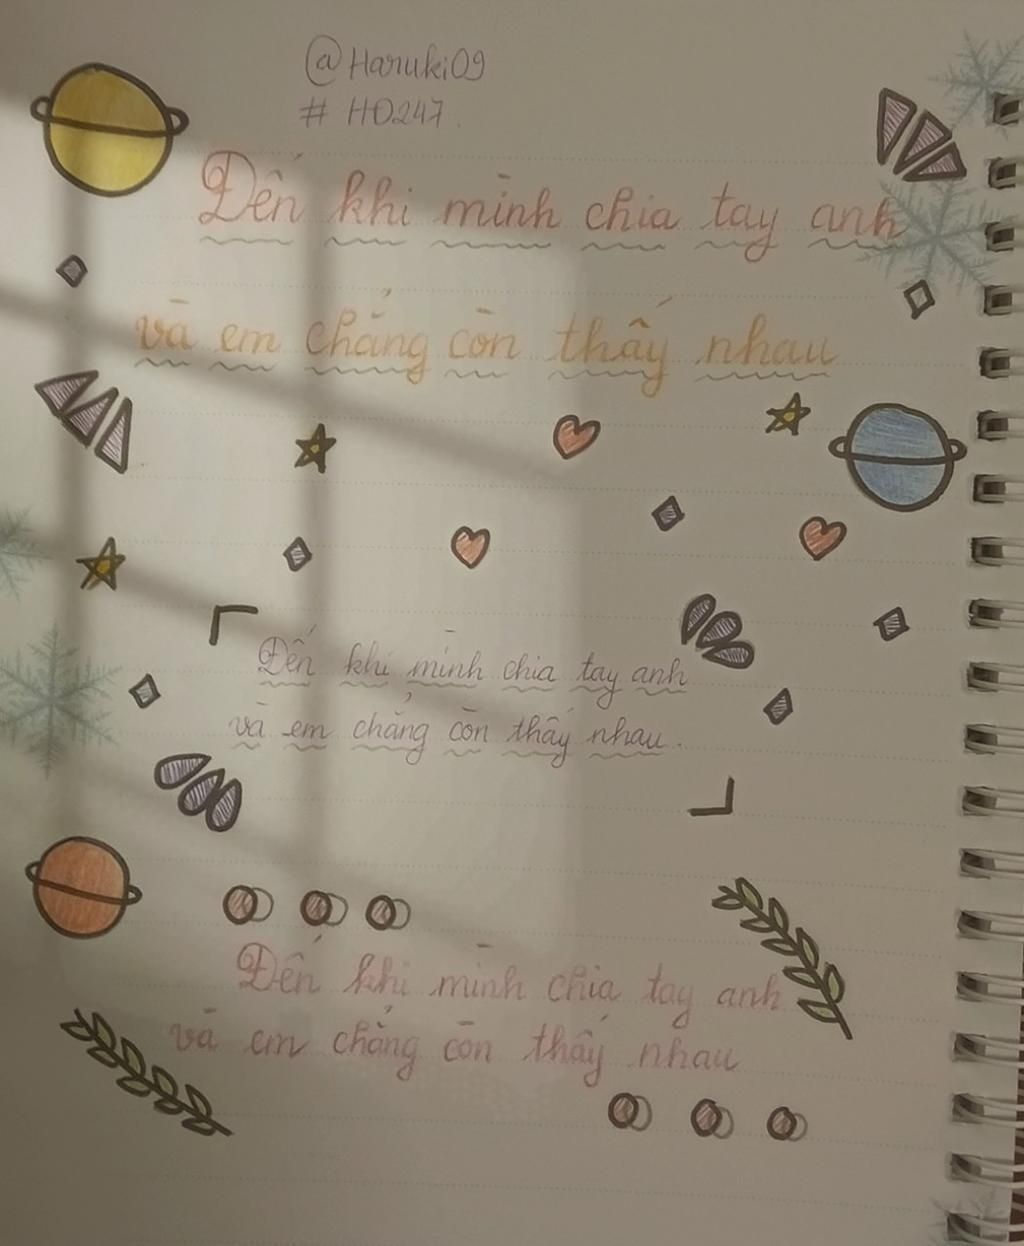 @Haruki09
# HĐ247.
Đến khi mình chia tay anh
và em chẳng còn thấy nhau
Đến khi mình chia tay anh
và em chẳng còn thấy nhau.
Đến khi mình chia tay anh
và em chẳng còn thấy nhau